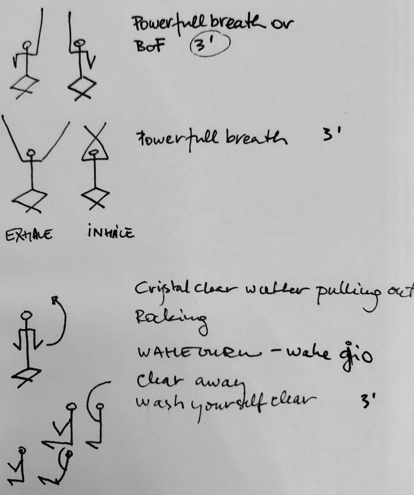 Powerfull breath or
BoF 3'
Powerfull breath 3'
EXHALE INHALE
Crystal clear watter pulling out
Rocking
- wahe gio
clear away
wash yourself clear 3'